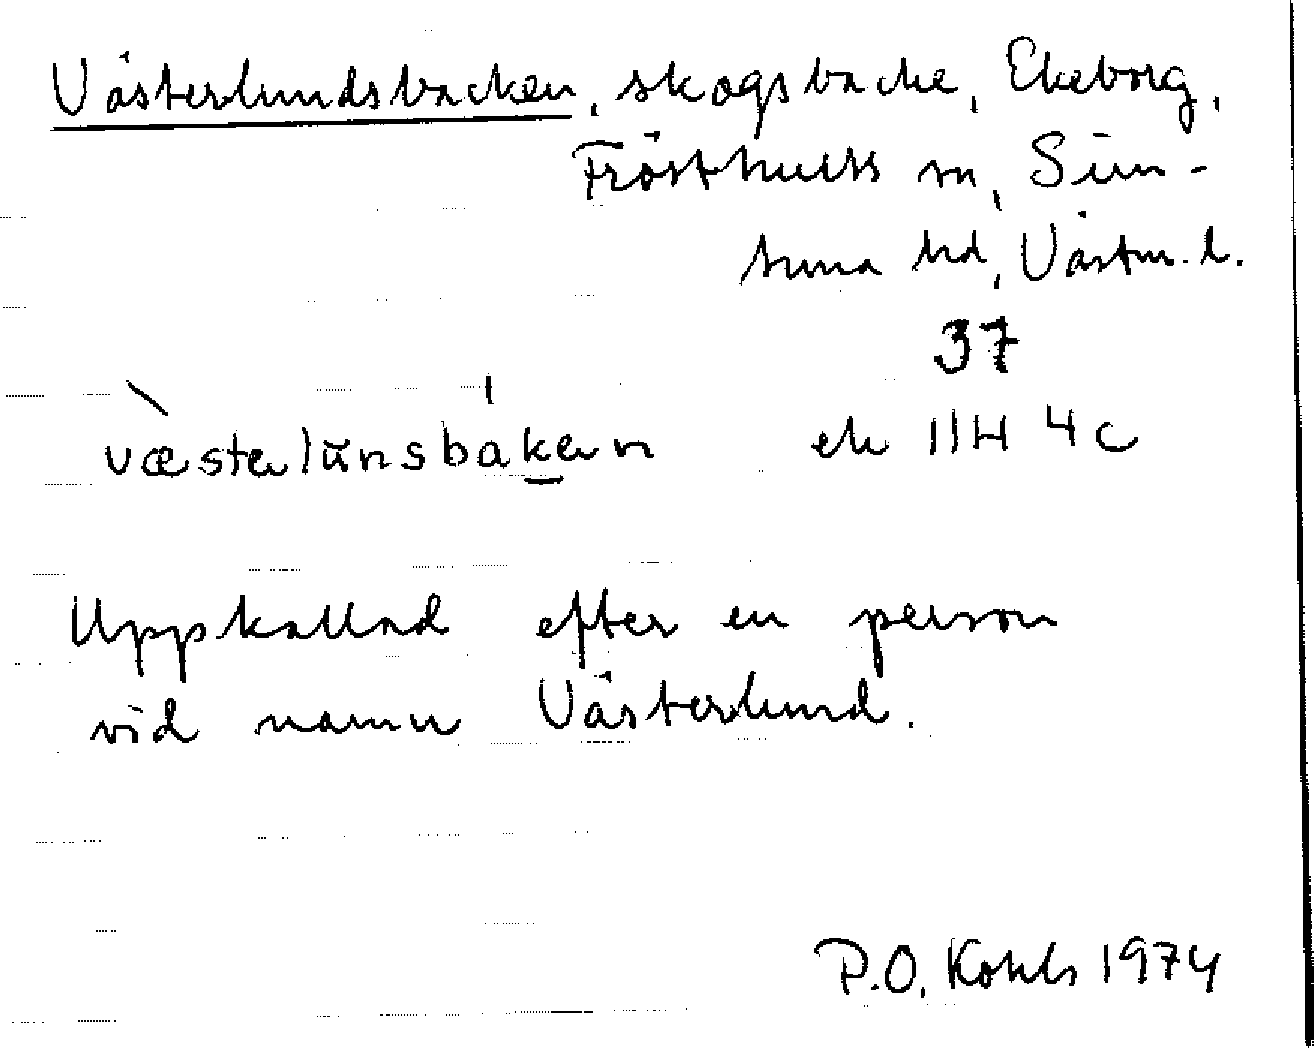 Västerlundsbacken, skogsbacke, Ekeborg,
Frösthults sn, Sim-
tuna hd, Västm. l.
37
væstərlunsbakən ek 11H 4c
Uppkallad efter en person
vid namn Västerlund.
P.O. Kohls 1974